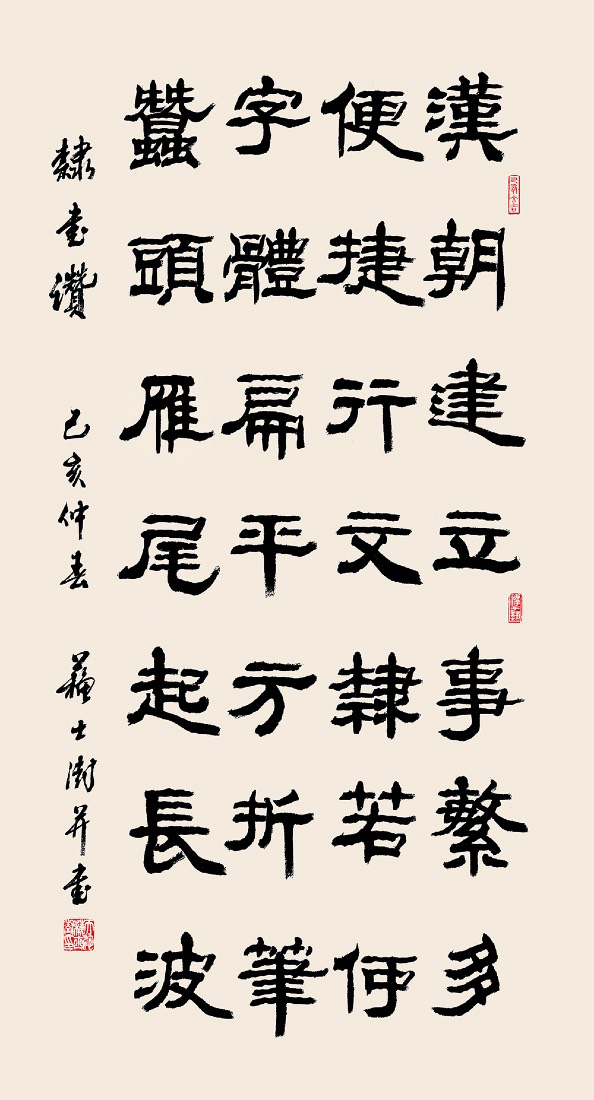 漢朝建立事繫多
便捷行文隸若何
字體扁平方折筆
蠶頭雁尾起長波
隸書讚 己亥仲春 蘇士澍并書